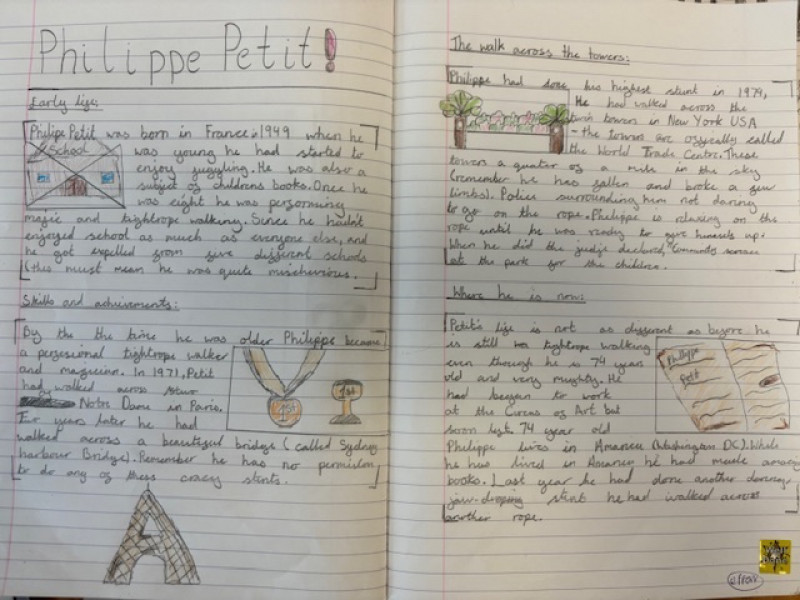 Philippe Petit!
Early life:
Philipe Petit was born in France in 1949 when he
School
was young he had started to
enjoy juggling. He was also a
subject of childrens books. Once he
was eight he was performing
magic and tightrope walking. Since he hadn't
enjoyed school as much as everyone else, and
he got expelled from five different schools
(this must mean he was quite mischevious.
Skills and achivements:
By the the time he was older Philippe became
a professional tightrope walker
and magician. In 1971, Petit
had walked across
Notre Dame in Paris.
years later he had
walked across a beautiful bridge (called Sydney
harbour Bridge). Remember he has no permision
to do any of these crazy stents.
1st
1st
A
The walk across the towers:
Philippe had done his highest stunt in 1974,
He had walked across the
twin towers in New York USA
- the towers are ofgically called
the World Trade Centre. These
towers a quater of a mile in the sky
(remember he has fallen and broke a few
limbs). Police surrounding him not daring
to go on the rope. Philippe is relaxing on the
rope until he was ready to give himself up.
When he did the judge declared, Community service
at the park for the children.
Where he is now:
Petit's life is not as different as before he
is still tightrope walking
even though he is 74 years
old and very mughty. He
had began to work
at the Circus of Art but
soon left. 74 year old
Phillippe
Petit
Philippe lives in (Washington DC). While
he has lived in he had made
books. Last year he had done another
jaw-droping stent he had walked across
another rope.